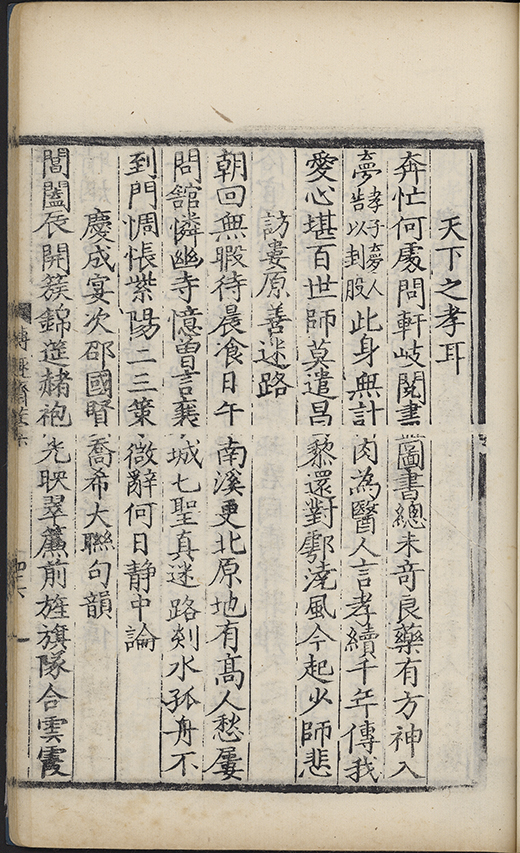 天下之孝耳
奔忙何處問軒岐閱盡啚書總未奇良藥有方神入
夢孝子夢人告以封股此身無計肉為醫人言孝續千年傳我
愛心堪百世師莫遣昌黎還對鄠澆風今起少師悲
訪婁原善迷路
朝回無暇待晨飡日午南溪更北原地有高人愁屢
問舘憐幽寺憶曾言襄城七聖真迷路剡水孤舟不
到門惆悵紫陽二三策微辭何日静中論
慶成宴次邵國賢喬希大聯句韻
閶闔辰開簇錦筵赭袍光映翠簾前旌旗隊合雲霞